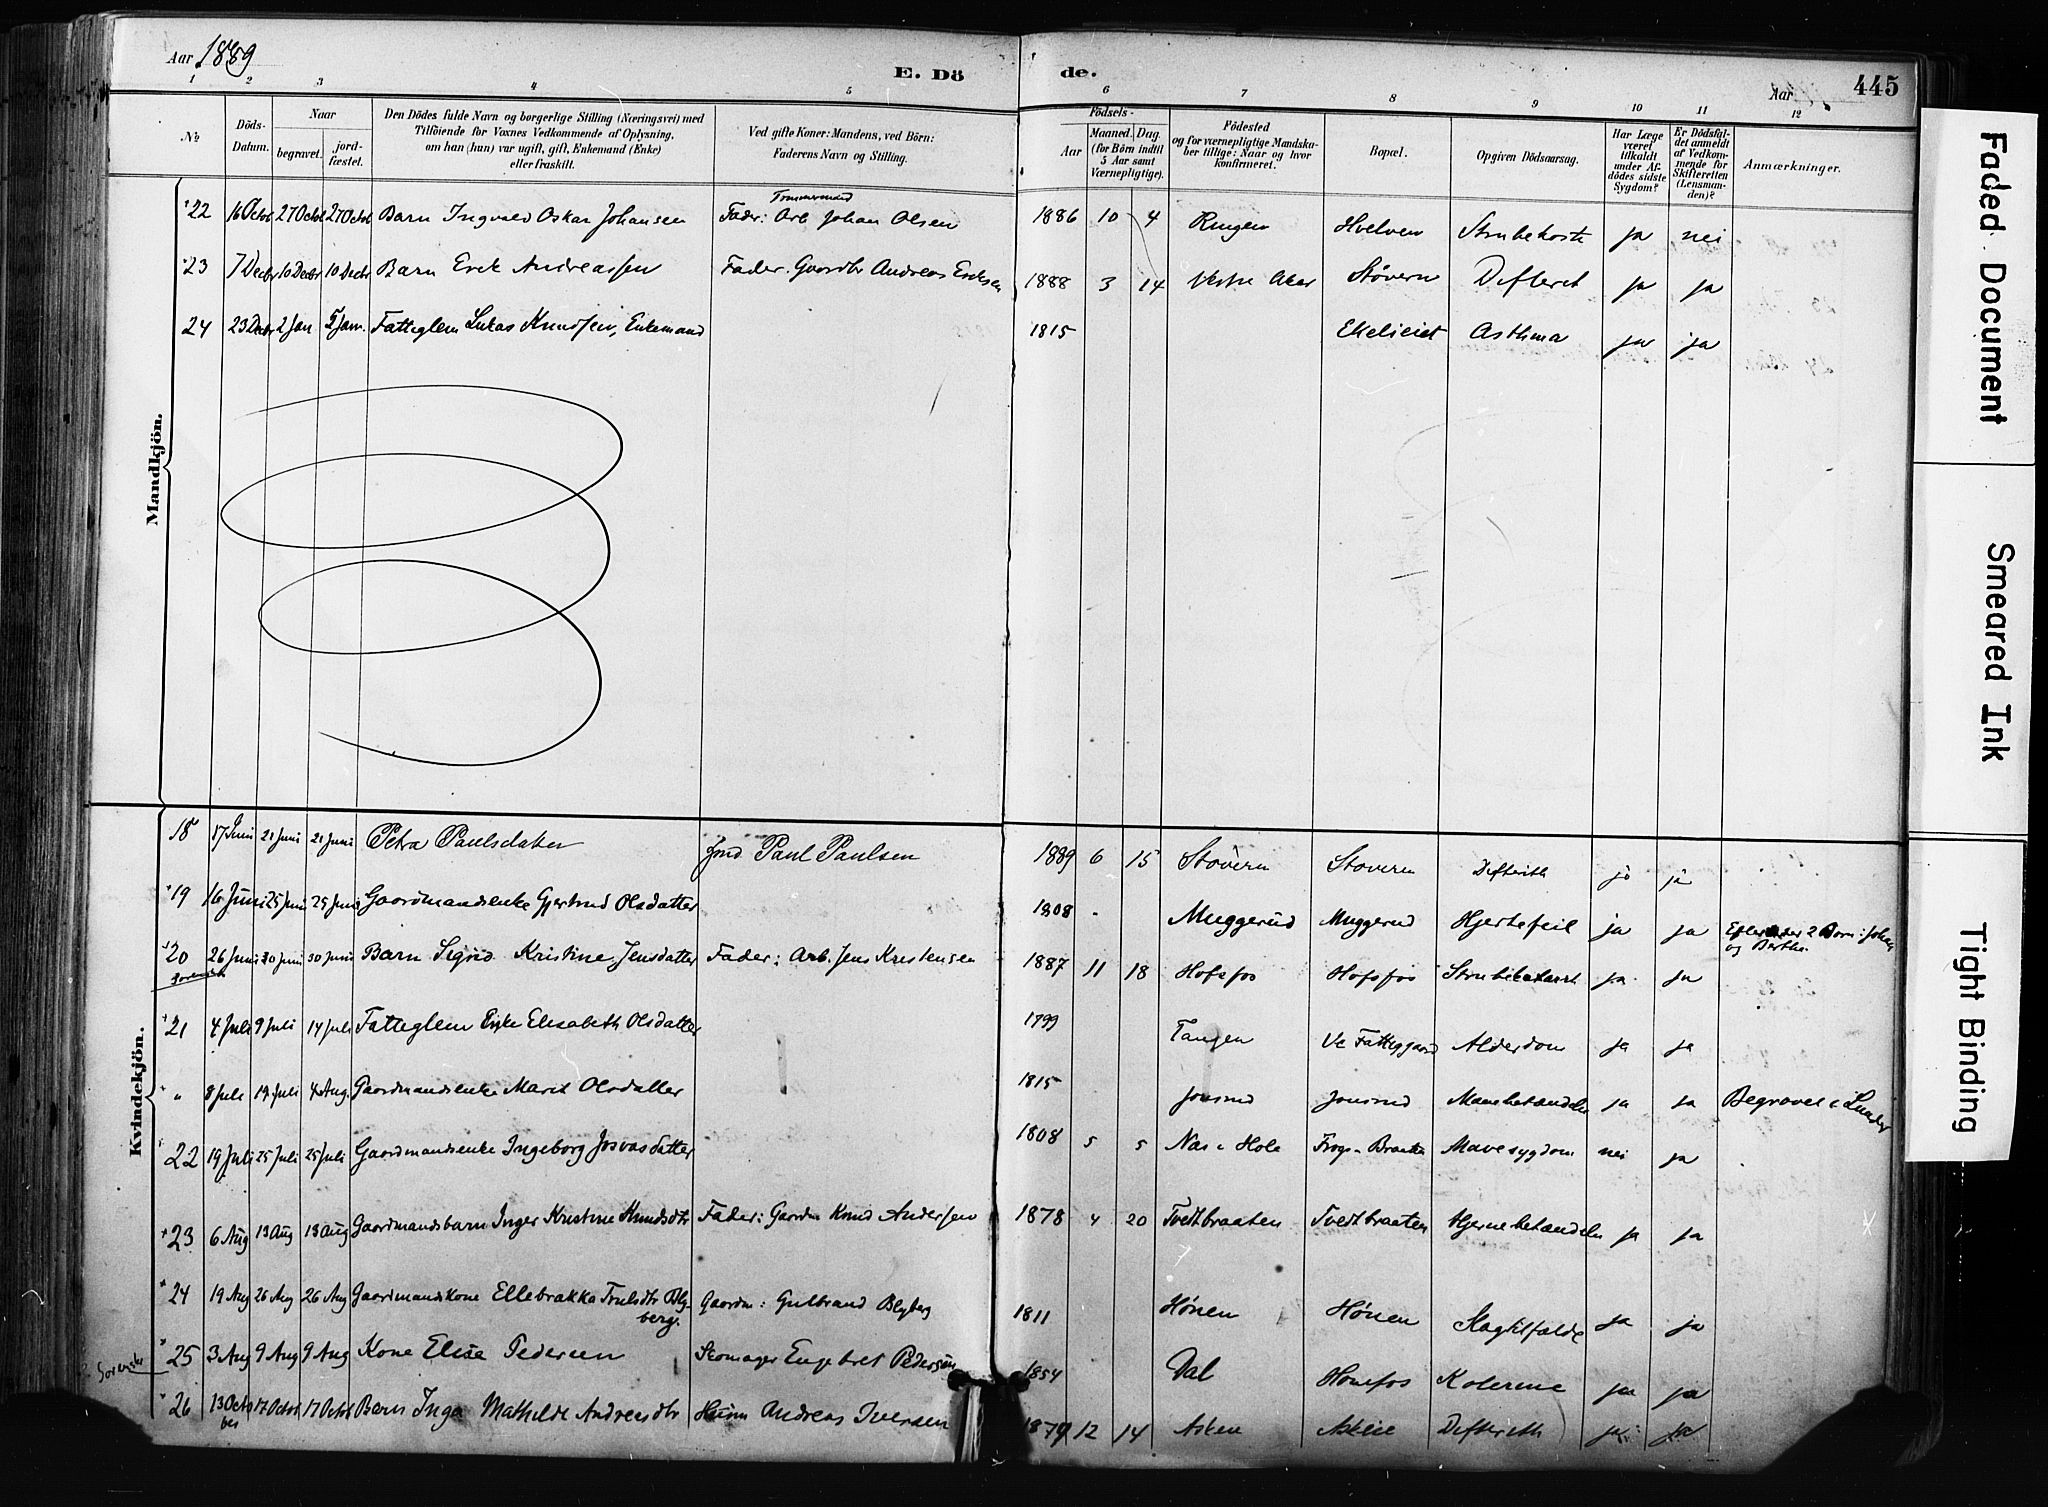 Aar 1889
E. Döde.
Aar
445
1 2 3 4 5 6 7 8 9 10 11 12
№
Döds-Datum.
Naar
begravet.
jordfæstet.
Den Dödes fulde Navn og borgerlige Stilling (Næringsvei) med
Tilföiende for Voxnes Vedkommende af Oplysning,
om han (hun) var ugift, gift, Enkemand (Enke)
eller fraskilt.
Ved gifte Koner: Mandens, ved Börn:
Faderens Navn og Stilling.
Födsels-
Aar
Maaned. Dag.
(for Börn indtil
5 Aar samt
Værnepligtige).
Födested
og for værnepligtige Mandskaber tillige: Naar og hvor
konfirmeret.
Bopæl.
Opgiven Dödsaarsag.
Har Læge
været
tilkaldt
under Afdödes sidste
Sygdom?
Er Dödsfaldet anmeldt
af Vedkommende for
Skifteretten
(Lensmanden)?
Anmærkninger.
Mandkjön.
22 16 Octob 27 Octob 27 Octob Barn Ingvald Oskar Johansen Fader: Arb Johan Olsen 1886 10 4 Ringen Hvelven Strubehoste ja nei
23 7 Decbr 10 Decbr 10 Decbr Barn Erik Andreassen Fader: Gaardbr Andreas Eriksen 1888 3 14 Vestre Aker Støvern Difterit ja ja
24 23 Decbr 2 Jan 5 Jan. Fatteglem Lukas Knudsen, Enkemand 1815 Ekelieiet Asthma ja ja
Kvindekjön.
18 17 Juni 21 Juni 21 Juni Petra Paulsdatter Paul Paulsen 1889 6 15 Støvern Støvern Difterith ja ja
19 16 Juni 25 Juni 25 Juni Gaardmandsenke Gjertrud Olsdatter 1808 Muggerud Muggerud Hjertefeil ja ja 2 Børn: Johan
og Berthe
20 26 Juni 30 Juni 30 Juni Barn Sigrid Kristine Jensdatter Fader: Arb. Jens Kristensen 1887 11 18 Hofsfos Hofsfos ja ja
21 4 Juli 9 Juli 14 Juli Fatteglem Enke Elisabeth Olsdatter 1799 Tangen Ve Fattiggaard Alderdom ja ja
" 8 Juli 14 Juli 4 Aug. Gaardmandsenke Marit Olsdatter 1815 Jonsrud Jonsrud ja ja Begravet i Lunder
22 19 Juli 25 Juli 25 Juli Gaardmandsenke Ingeborg Josvasdatter 1808 5 5 Næs i Hole Frogs-Braaten Mavesygdom nei ja
23 6 Aug 13 Aug 13 Aug Gaardmandsbarn Inger Kristine Knudsdtr Fader: Gaardm Knud Andersen 1878 4 20 Tvedtbraaten Tvedtbraaten Hjernebetændelse ja ja
24 19 Aug 26 Aug 26 Aug Gaardmandskone Ellebrakka Trulsdtr Blyberg. Gaardm: Gulbrand Blyberg 1811 Hønen Hønen Slagtilfælde ja ja
25 3 Aug 9 Aug 9 Aug Kone Elise Pedersen Skomager Engebret Pedersen 1854 Dal Hønefos Kolerine ja ja
26 13 Octobber 17 Octob 17 Octob Barn Inga Mathilde Andreasdtr Husm Andreas Iversen 1879 12 14 Asken Difterith ja ja
Faded Document
Smeared Ink
Tight Binding